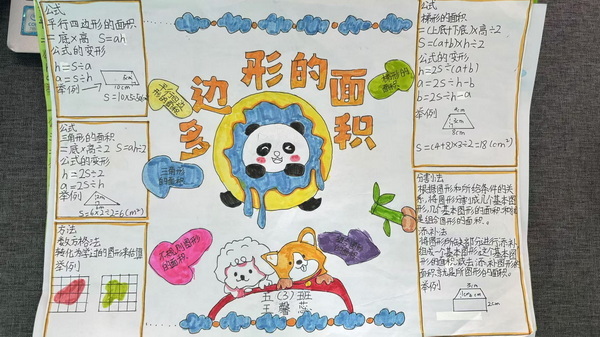 多边形的面积
公式
平行四边形的面积
=底×高 S=ah
公式的变形
h=S÷a
a=S÷h
举例
10cm
公式
三角形的面积
=底×高÷2 S=ah÷2
公式的变形
h=2S÷a
a=2S÷h
举例
方法
数方格法
举例
平行四边形的面积
三角形的面积
不规则图形的面积
梯形的面积
五(3)班
王馨蕊
公式
梯形的面积
=(上底+下底)×高÷2
S=(a+b)×h÷2
公式的变形
h=2S÷(a+b)
a=2S÷h-b
b=2S÷h-a
举例
4cm
8cm
S=(4+8)×3÷2=18(cm²)
分割法
根据图形和所给条件的关
系,将图形分割成几个基本图
形,几个基本图形的面积和就
是组合图形的面积。
添补法
将图形所缺部分进行添补,
组成一个基本图形,这个基本图
形的面积减去添补图形的
面积,就是所求图形的面积。
举例
2cm